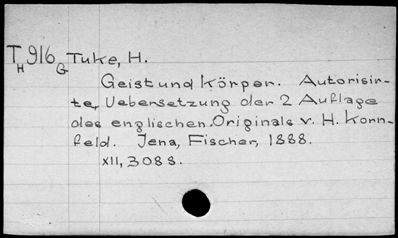 TH 916 G Tuke, H.
Geist und Körper. Autorisir-
te, Uebersetzung der 2 Auflage
des englischen Originals v. H. Korn-
feld. Jena, Fischer, 1888.
XII, 308 S.